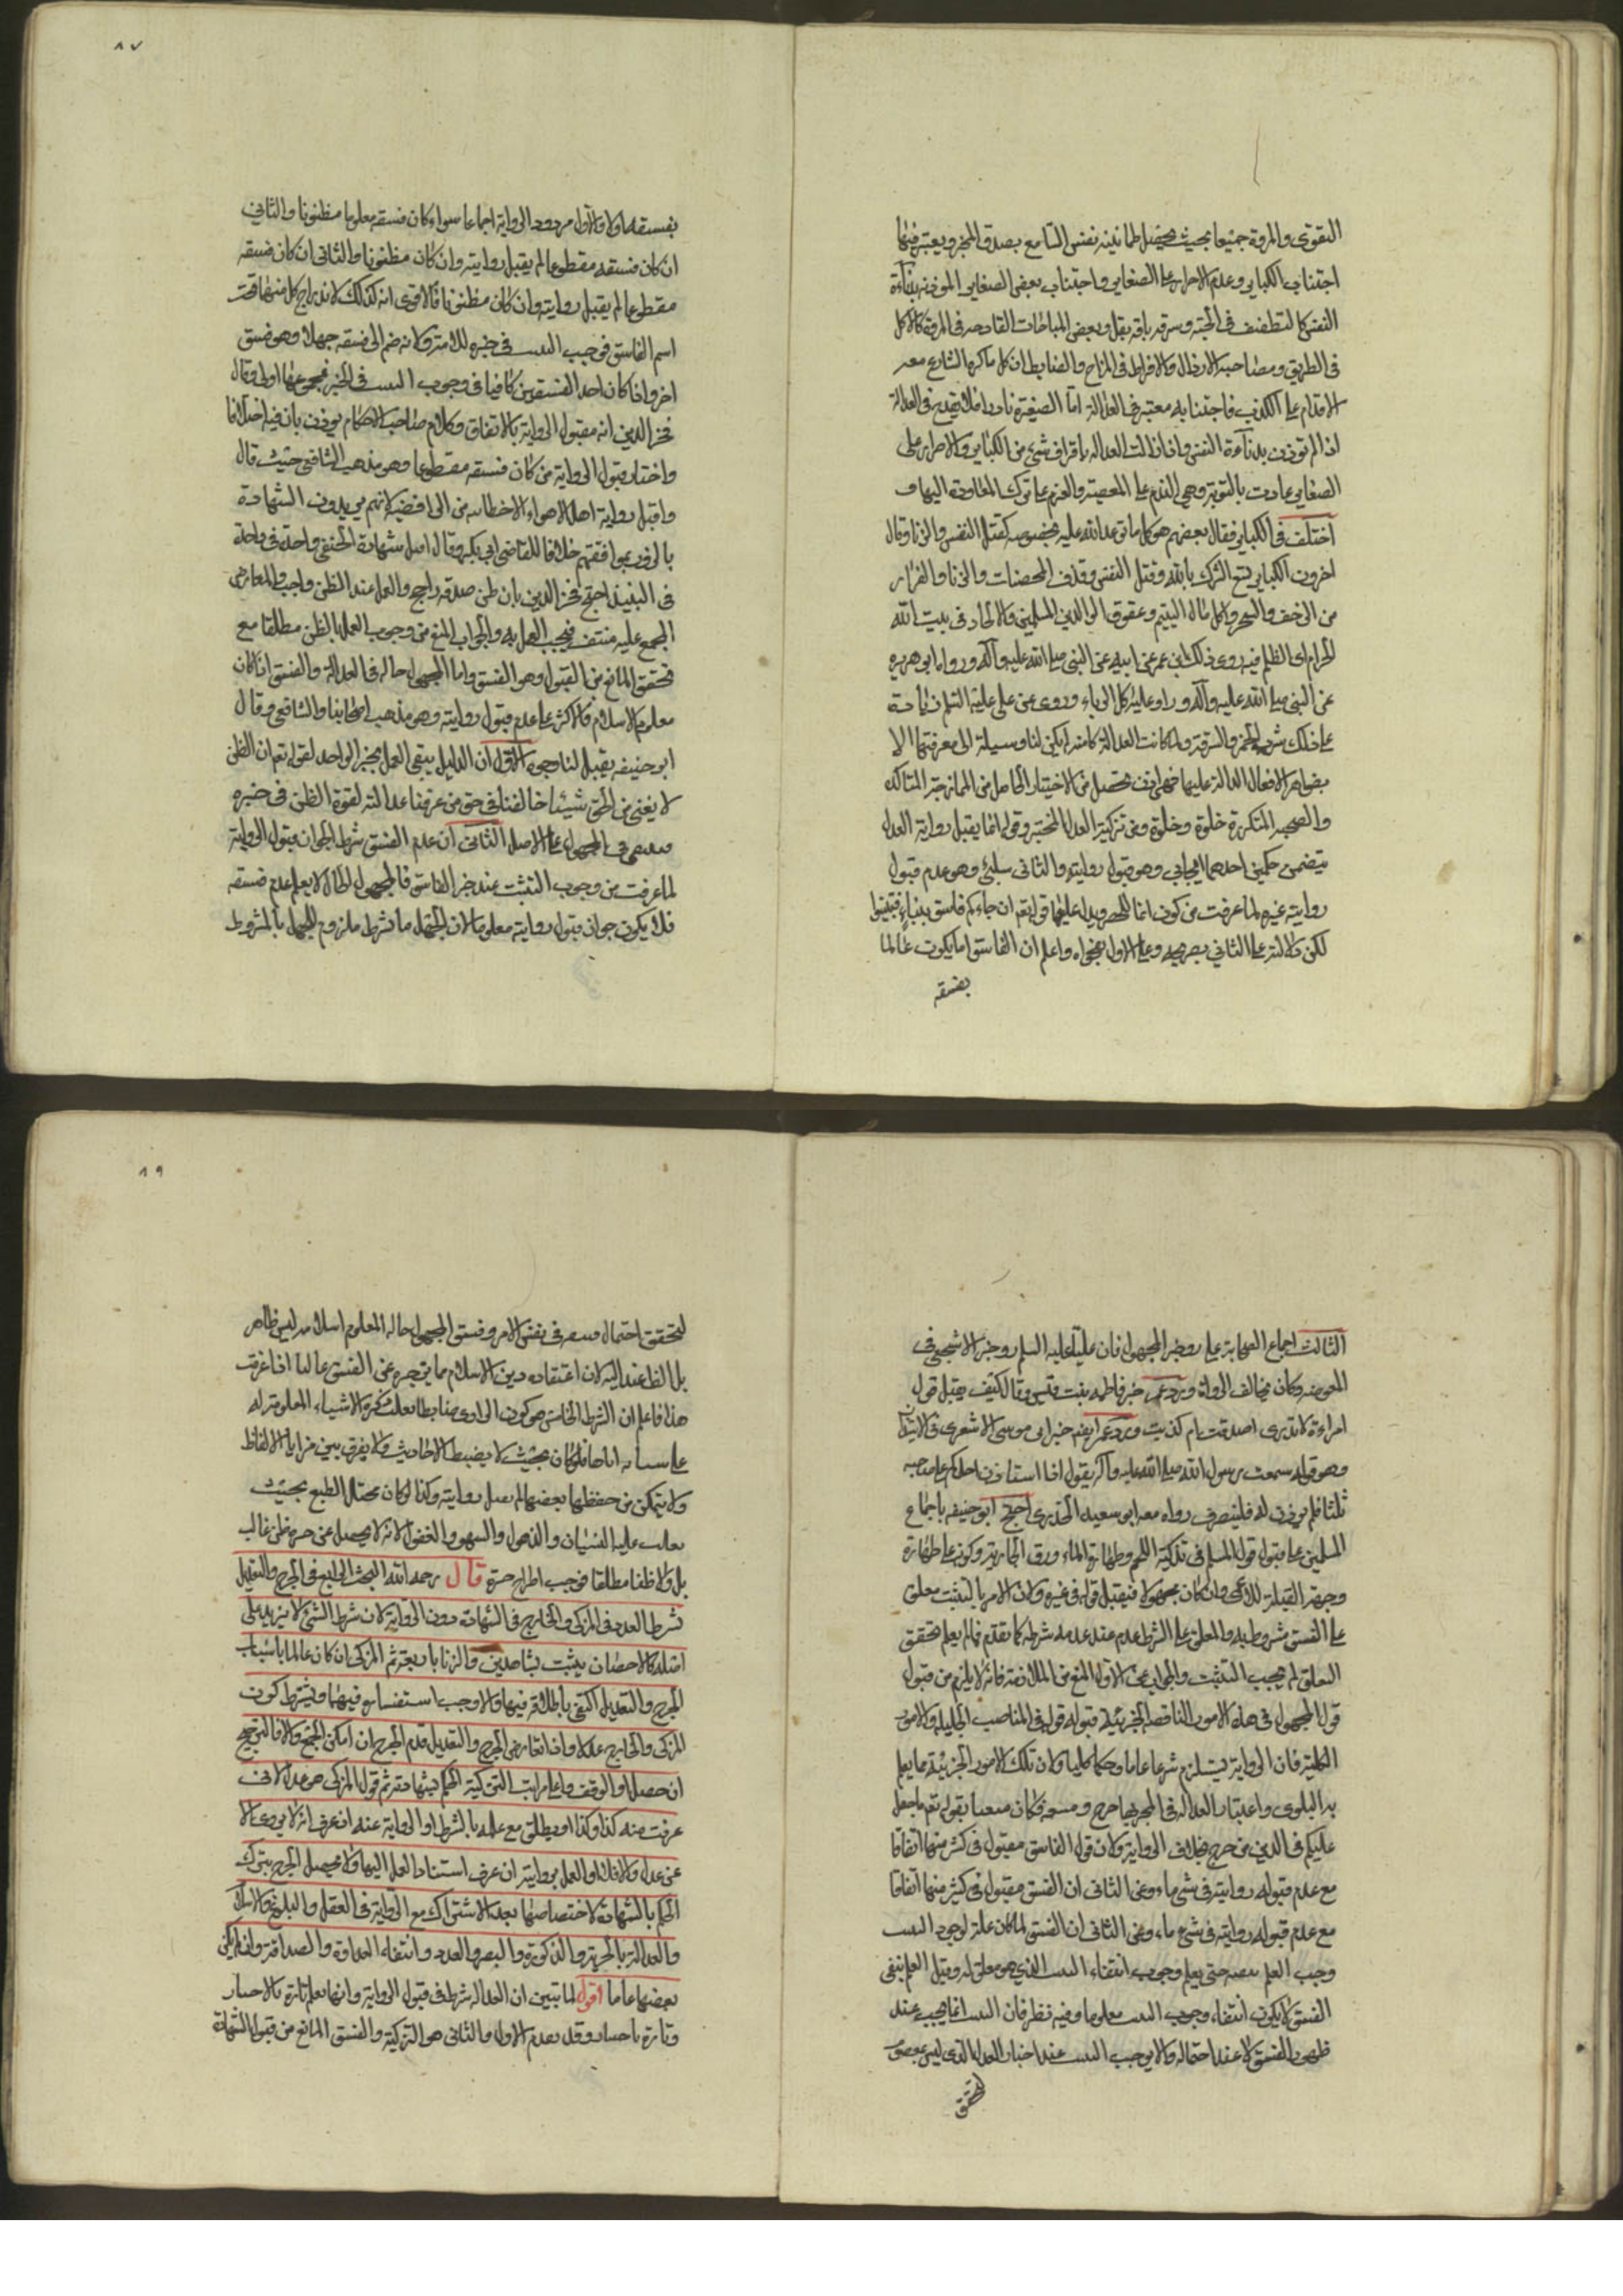 التقوى والمروة جميعا بحيث يحصل طمانينة نفس السامع بصدق المخبر ويعتبر فيها
اجتناب الكباير وعدم الاصرار على الصغاير واجتناب بعض الصغاير الموذنة بدناءة
النفس كالتطفيف في الحبة وسرقة باقة بقل وبعض المباحات القادحة في المروة كالاكل
في الطريق ومصاحبة الارذال والافراط في المزاح والضابط ان كل ما كره الشارع معه
الاقدام على الكذب فاجتنابه معتبر في العدالة اما الصغيرة نادرا فلا يقدح في العدالة
اذا لم توذن بدناءة النفس واذا زالت العدالة باقتراف شئ من الكباير والاصرار على
الصغاير عادت بالتوبة وهي الندم على المعصية والعزم على ترك المعاودة اليها و
اختلف في الكباير فقال بعضهم هو كل ما توعد الله عليه بخصوصه كقتل النفس والزنا وقال
اخرون الكباير تسع الشرك بالله وقتل النفس وقذف المحصنات والزنا والفرار
من الزحف والسحر واكل مال اليتيم وعقوق الوالدين المسلمين والالحاد في بيت الله
الحرام اى الظلم فيه روى ذلك ابن عمر عن ابيه عن النبي صلى الله عليه وآله ورواه ابي هريره
عن النبي صلى الله عليه وآله وزاد عليه اكل الرباء وروى عن علي عليه السلم زيادة
على ذلك شرب الخمر والسرقة ولما كانت العدالة كامنة لم يكن لنا وسيلة الى معرفتها الا
بظواهر الافعال الدالة عليها فهي اذن تحصل من الاختبار الحاصل من الممازجة المتاكده
والصحبة المتكررة خلوة وخلوة ومن تزكية العدل المختبر وقوله انما يقبل رواية العدل
يتضمن حكمين احدهما ايجابي وهو قبول روايته والثاني سلبي وهو عدم قبول
رواية غيره لما عرفت من كون انما للحصر ويدل عليهما قوله تعم ان جاءكم فاسق بنباء فتبينوا
لكن دلالته على الثاني بصريحه وعلى الاول بفحواه واعلم ان الفاسق اما يكون عالما
بفسقه
٨٧
بفسقه اولا والاول مردود الرواية اجماعا سواء كان فسقه معلوما مظنونا والثاني
ان كان فسقه مقطوعا لم يقبل روايته وان كان مظنونا والثاني ان كان فسقه
مقطوعا لم يقبل روايته وان كان مظنونا فالاقوى انه كذلك لاندراج كل منهما تحت
اسم الفاسق فوجب التثبت في خبره للامر ولانه ضم الى فسقه جهلا وهو فسق
اخر واذا كان احد الفسقين كافيا في وجوب التثبت في الخبر فمجموعهما اولى وقال
فخر الدين انه مقبول الرواية بالاتفاق وكلام صاحب الاحكام يوذن بان فيه اختلافا
واختار قبول الرواية من كان فسقه مقطوعا وهو مذهب الشافعي حيث قال
واقبل رواية اهل الاهواء الا الخطابيه من الرافضيه لانهم يريدون الشهادة
بالزور بموافقتهم خلافا للقاضي ابي بكر وقال اقبل شهادة الحنفي واحده في واحدة
في النبيذ احتج فخر الدين بان ظن صدقه راجح والعمل عند الظن واجب والمعارض
المجمع عليه منتف فيجب العمل به والجواب المنع من وجوب العمل بالظن مطلقا مع
تحقق المانع من القبول وهو الفسق واما المجهول حاله في العدالة والفسق اذا كان
معلوم الاسلام فالاكثر على عدم قبول روايته وهو مذهب اصحابنا والشافعي وقال
ابو حنيفه يقبل لنا وجوه الاول ان الدليل ينفي العمل بخبر الواحد لقوله تعم ان الظن
لا يغني من الحق شيئا خالفنا في حق من عرفنا عدالته لقوة الظن في خبره
فيبقى في المجهول على الاصل الثاني ان عدم الفسق شرط الجواز قبول الرواية
لما عرفت من وجوب التثبت عند خبر الفاسق فالمجهول الحال لا يعلم عدم فسقه
فلا يكون جواز قبول روايته معلوما لان الجهل بالشرط ملزوم للجهل بالمشروط
الثالث اجماع الصحابة على رد خبر المجهول فان عليا عليه السلم رد خبر الاشجعي في
المفوضه وكان يحالف الرواة ورد عمر خبر فاطمه بنت قيس وقال كيف يقبل قول
امراءة لا تدرى اصدقت ام كذبت ورد عمر ايضم خبر ابى موسى الاشعرى في الاستيذان
وهو قوله سمعت رسول الله صلى الله عليه وآله يقول اذا استاذن احدكم على صاحبه
ثلثا فلم يوذن له فلينصرف رواه معه ابو سعيد الخدرى احتج ابو حنيفه باجماع
المسلمين على قبول قول المسلم في تذكية اللحم وطهارة الماء ورق الجارية وكونه على طهارة
وجهة القبلة للاعمى وان كان مجهولا فيقبل قوله في غيره ولان الامر بالتثبت معلق
على الفسق مشروط به والمعلق على الشرط عدم عند عدمه شرطه كما تقدم فما لم يعلم تحقق
المعلق لم يجب التثبت والجواب عن الاول المنع من الملازمة فانه لا يلزم من قبول
قول المجهول في هذه الامور الناقصه الجزئيه قبول قوله في المناصب الجليله والامور
الكلية فان الرواية يستلزم شرعا عاما وحكما كليا ولان تلك الامور الجزئية مما يعم
به البلوى واعتبار العدالة في المخبر بها حرج ومشقه فكان منفيا بقوله تعم ما جعل
عليكم في الدين من حرج بخلاف الرواية ولان قول الفاسق مقبول في كثير منها اتفاقا
مع عدم قبول روايته في شئ ماء وعن الثانى ان الفسق مقبول في كثير منها اتفاقا
مع عدم قبول روايته في شئ ماء وعن الثانى ان الفسق لما كان علة لوجوب التثبت
وجب العلم بعدمه حتى يعلم وجوب انتفاء التثبت الذي هو معلق له وقبل العلم بنفى
الفسق لا يكون انتفاء وجوب التثبت معلوما وفيه نظر فان التثبت انما يجب عند
ظهور الفسق لا عند احتماله والا لوجب التثبت عند اخبار العدل الذي ليس بمعصوم
لتحقق
٨٩
لتحقق احتمال فسقه في نفس الامر وفسق المجهول حاله المعلوم اسلامه ليس ظاهر
بل الظاهر عند اليه لان اعتقاده دين الاسلام مما يزجره عن الفسق غالبا اذا عرفت
هذا فاعلم ان الشرط الخامس هو كون الراوى ضابطا بعلت ذكره الاشياء المعلومة له
على نسيانه اياها فلو كان بحيث لا يضبط الاحاديث ولا يفرق بين مزايا الالفاظ
ولا يتمكن من حفظها بعضها لم يقبل روايته وكذا لو كان مختل الطبع بحيث
يغلب عليه النسيان والذهول والسهو والغفول لانه لا يحصل عن خبره ظن غالب
بل ولا ظنا مطلقا فوجب اطراح خبره قال رحمه الله البحث الرابع في الجرح والتعديل
شرط العدد في المزكى والجارح في الشهادة دون الرواية لان شرط الشئ لا يزيد على
اصله كالاحصان يثبت بشاهدين والزنا باربعة ثم المزكى ان كان عالما باسباب
الجرح والتعديل اكتفى باطلاقه فيها والا وجب استفساره فيهما ويشترط كون
المزكى والجارح عدلا واذا تعارض الجرح والتعديل قدم الجرح ان امكن الجمع والا فالترجيح
ان حصل او الوقف واعلى مراتب التزكية الحكم بشهادته ثم قول المزكى هو عدل لانى
عرفت منه كذا وكذا او يطلق مع علمه بالشرط او الرواية عنه ان عرف انه لا يروى الا
عن عدل والا فلا والعمل بروايته ان عرف استناد العمل اليها ولا يحصل الجرح بترك
الحكم بالشهادة لاختصاصها بعد الاشتراك مع الرواية في العقل والبلوغ والاسلام
والعدالة بالحرية والذكورة والبصر والعدد وانتفاء العداوة والصداقة وان لم يكن
بعضها عاما اقول لما تبين ان العدالة شرط في قبول الرواية وانها تعلم تارة بالاختبار
وتارة باخبار وقد تقدم الاول والثانى هو التزكية والفسق المانع من قبول الشهادة